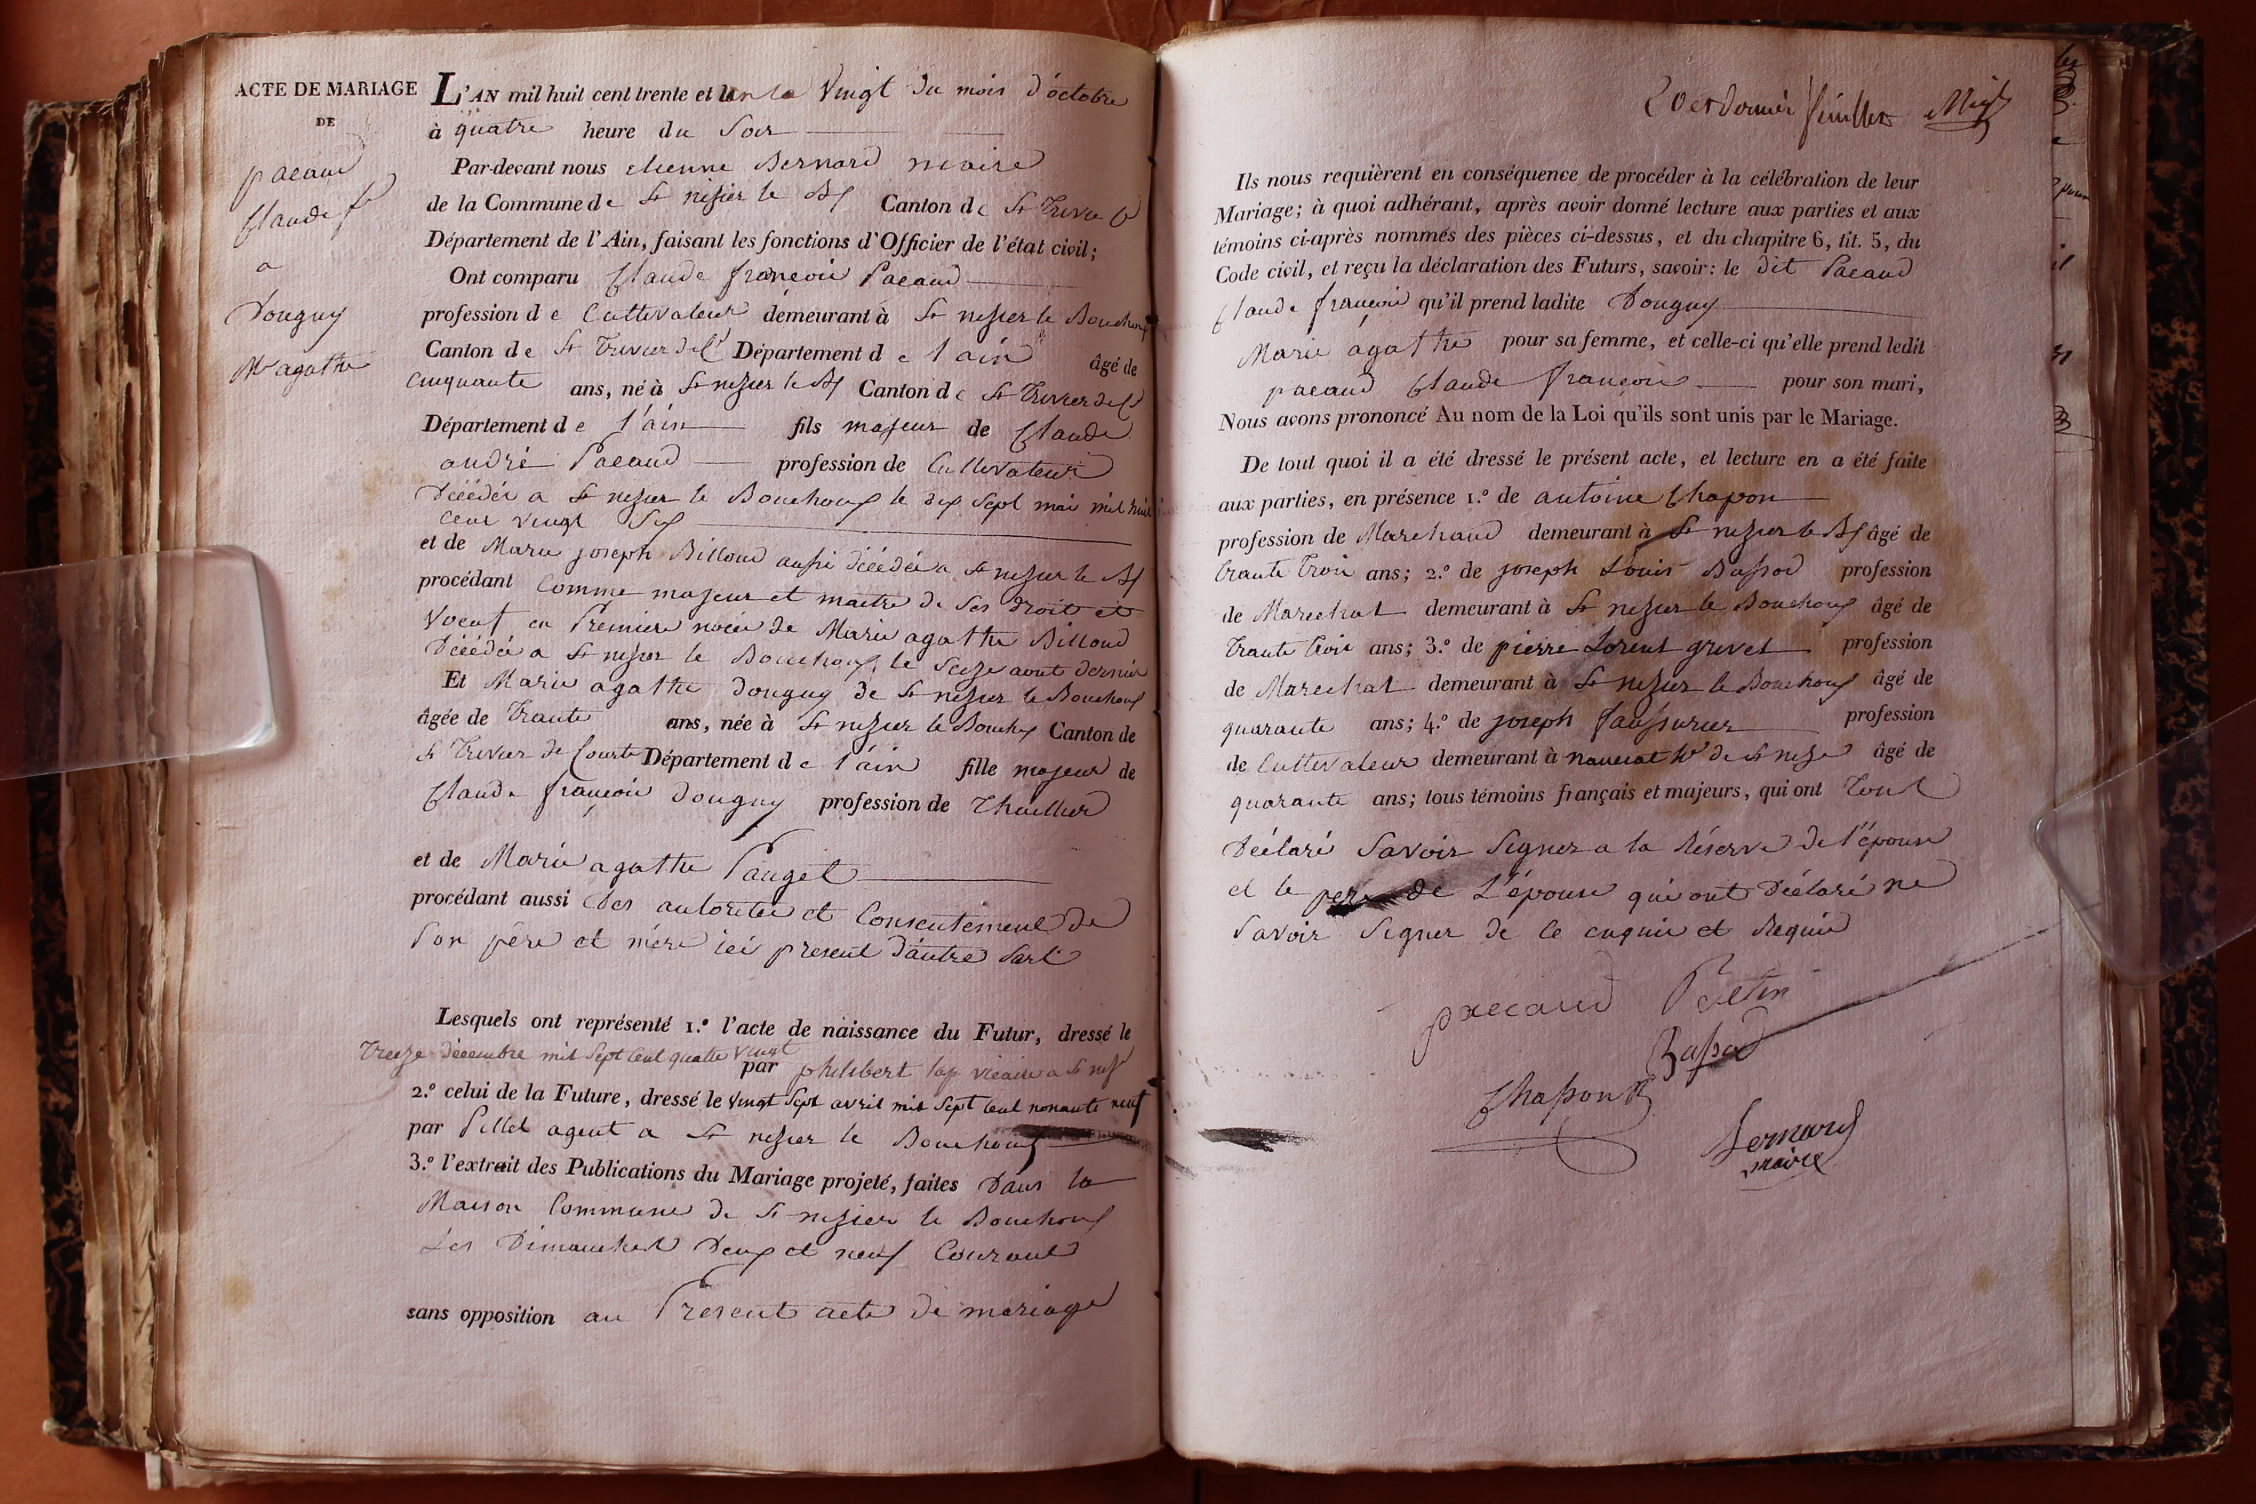 ACTE DE MARIAGE
DE
pacaud
Claude fs
a
Douguy
Me agathe
L'AN mil huit cent trente et un le Vingt du mois d'octobre
à quatre heure du Soir
Par-devant nous etienne Bernard maire
de la Commune de St nizier le Bx Canton de St Trivier C
Département de l'Ain, faisant les fonctions d'Officier de l'état civil;
Ont comparu Claude françois Pacaud
profession de Cultivateur demeurant à St nizier le Bouchoux
Canton de St Trivier de C Département de l'ain âgé de
Cinquante ans, né à St nizier le Bx Canton de St Trivier de C
Département de l'ain fils majeur de Claude
andré Pacaud profession de Cultivateur
Décédé a St nizier le Bouchoux le dix Sept mai mil huit
cent vingt Six
et de Marie joseph Billoud aussi décédée a St nizier le Bx
procédant Comme majeur et maitre de Ses droits et
Voeuf en Premiere noces de Marie agathe Billoud
Décédée a St nizier le Bouchoux le Seize aout dernier
Et Marie agathe Douguy de St nizier le Bouchoux
âgée de Trante ans, née à St nizier le Bouchx Canton de
St Trivier de Courte Département de l'ain fille majeur de
Claude françois Douguy profession de Thuillier
et de Marie agathe Pauget
procédant aussi des autorités et Consentement de
Son père et mère ici présent d'autre Part
Lesquels ont représenté 1.º l'acte de naissance du Futur, dressé le
Treize décembre mil Sept Cent quatre vingt
par philibert vicaire a St niz
2.º celui de la Future, dressé le vingt Sept avril mil Sept Cent nonante neuf
par Pillet agent a St nizier le Bouchoux
3.º l'extrait des Publications du Mariage projeté, faites Dans la
Maison Commune de St nizier le Bouchoux
Les Dimanches Deux et neuf Courant
sans opposition au Present acte de mariage
feuillet
Ils nous requièrent en conséquence de procéder à la célébration de leur
Mariage; à quoi adhérant, après avoir donné lecture aux parties et aux
témoins ci-après nommés des pièces ci-dessus, et du chapitre 6, tit. 5, du
Code civil, et reçu la déclaration des Futurs, savoir: le dit Pacaud
Claude françois qu'il prend ladite Douguy
Marie agathe pour sa femme, et celle-ci qu'elle prend ledit
pacaud Claude françois pour son mari,
Nous avons prononcé Au nom de la Loi qu'ils sont unis par le Mariage.
De tout quoi il a été dressé le présent acte, et lecture en a été faite
aux parties, en présence 1.º de antoine Chapon
profession de Marchand demeurant à St nizier le Bx âgé de
trante trois ans; 2.º de joseph Louis Bassod profession
de Marechal demeurant à St nizier le Bouchoux âgé de
trante trois ans; 3.º de pierre Lorent grivet profession
de Marechal demeurant à St nizier le Bouchoux âgé de
quarante ans; 4.º de joseph faussurier profession
de Cultivateur demeurant à de St nizi âgé de
quarante ans; tous témoins français et majeurs, qui ont Tout
Déclaré Savoir Signer a la Réserve de l'épouse
et le pere de L'épouse qui ont Déclaré ne
Savoir Signer de ce enquis et Requis
paccaud
Bassod
Chapon
Bernard
maire